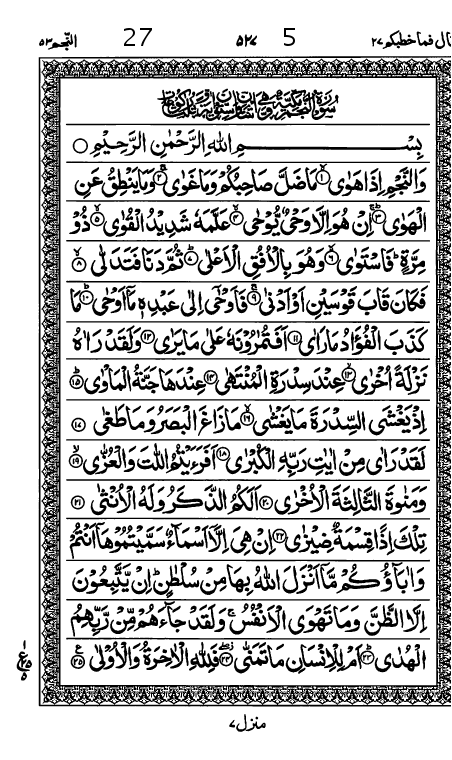 قال فما خطبكم ٢٧ 5 ٥٢٧ 27 النجم ٥٣
بِسْمِ اللّٰهِ الرَّحْمٰنِ الرَّحِيْمِ ○
وَالنَّجْمِ اِذَا هَوٰى ۙ﴿۱﴾ مَا ضَلَّ صَاحِبُكُمْ وَمَا غَوٰى ۚ﴿۲﴾ وَمَا يَنْطِقُ عَنِ
الْهَوٰى ؕ﴿۳﴾ اِنْ هُوَ اِلَّا وَحْىٌ يُّوْحٰى ۙ﴿۴﴾ عَلَّمَهٗ شَدِيْدُ الْقُوٰى ۙ﴿۵﴾ ذُوْ
مِرَّةٍ ؕ فَاسْتَوٰى ۙ﴿۶﴾ وَهُوَ بِالْاُفُقِ الْاَعْلٰى ؕ﴿۷﴾ ثُمَّ دَنَا فَتَدَلّٰى ۙ﴿۸﴾
فَكَانَ قَابَ قَوْسَيْنِ اَوْ اَدْنٰى ۚ﴿۹﴾ فَاَوْحٰۤى اِلٰى عَبْدِهٖ مَاۤ اَوْحٰى ؕ﴿۱۰﴾ مَا
كَذَبَ الْفُؤَادُ مَا رَاٰى ﴿۱۱﴾ اَفَتُمٰرُوْنَهٗ عَلٰى مَا يَرٰى ﴿۱۲﴾ وَلَقَدْ رَاٰهُ
نَزْلَةً اُخْرٰى ۙ﴿۱۳﴾ عِنْدَ سِدْرَةِ الْمُنْتَهٰى ﴿۱۴﴾ عِنْدَهَا جَنَّةُ الْمَاْوٰى ؕ﴿۱۵﴾
اِذْ يَغْشَى السِّدْرَةَ مَا يَغْشٰى ۙ﴿۱۶﴾ مَا زَاغَ الْبَصَرُ وَمَا طَغٰى ﴿۱۷﴾
لَقَدْ رَاٰى مِنْ اٰيٰتِ رَبِّهِ الْكُبْرٰى ﴿۱۸﴾ اَفَرَءَيْتُمُ اللّٰتَ وَالْعُزّٰى ۙ﴿۱۹﴾
وَمَنٰوةَ الثَّالِثَةَ الْاُخْرٰى ﴿۲۰﴾ اَلَكُمُ الذَّكَرُ وَلَهُ الْاُنْثٰى ﴿۲۱﴾
تِلْكَ اِذًا قِسْمَةٌ ضِيْزٰى ﴿۲۲﴾ اِنْ هِىَ اِلَّاۤ اَسْمَآءٌ سَمَّيْتُمُوْهَاۤ اَنْتُمْ
وَاٰبَآؤُكُمْ مَّاۤ اَنْزَلَ اللّٰهُ بِهَا مِنْ سُلْطٰنٍ ؕ اِنْ يَّتَّبِعُوْنَ
اِلَّا الظَّنَّ وَمَا تَهْوَى الْاَنْفُسُ ۚ وَلَقَدْ جَآءَهُمْ مِّنْ رَّبِّهِمُ
الْهُدٰى ؕ﴿۲۳﴾ اَمْ لِلْاِنْسَانِ مَا تَمَنّٰى ۖ﴿۲۴﴾ فَلِلّٰهِ الْاٰخِرَةُ وَالْاُوْلٰى ﴿۲۵﴾
ع
منزل ٧